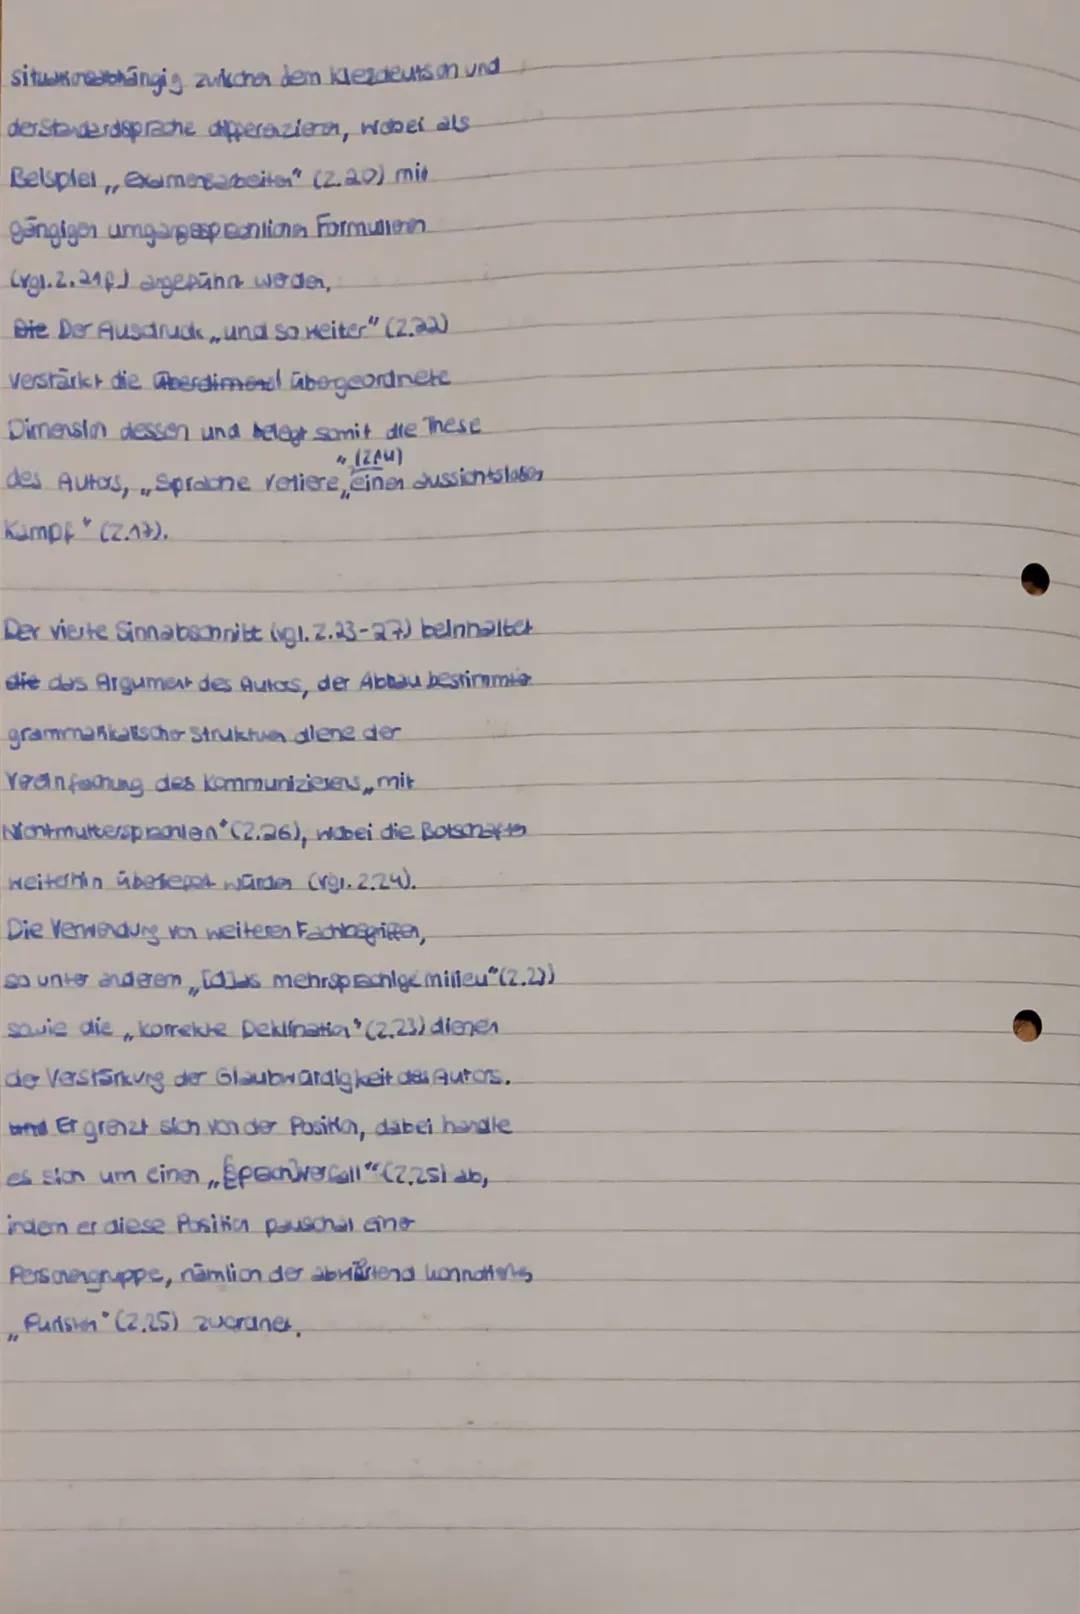 situationsabhängig zwischen dem Kiezdeutsch und
der Standardsprache differenzieren, wobei als
Beispiel „Examensarbeiten" (Z.20) mit
gängigen umgangssprachlichen Formulieren
(vgl. Z. 21f.) angeführt werden.
Die Der Ausdruck „und so weiter" (Z.22)
verstärkt die überdimensi übergeordnete
Dimension dessen und belegt somit die These
des Autors, „Sprache verliere" (Z.14) „einen aussichtslosen
Kampf" (Z.17).
Der vierte Sinnabschnitt (vgl. Z.23-27) beinhaltet
die das Argument des Autors, der Abbau bestimmter
grammatikalischer Strukturen diene der
Vereinfachung des Kommunizierens „mit
Nichtmuttersprachlern" (Z.26), wobei die Botschaften
weiterhin übersetzt würden (vgl. Z.24).
Die Verwendung von weiteren Fachbegriffen,
so unter anderem „[d]as mehrsprachige Milieu" (Z.23)
sowie die „korrekte Deklination" (Z.23) dienen
der Verstärkung der Glaubwürdigkeit des Autors.
und Er grenzt sich von der Position, dabei handle
es sich um einen „[Sprach]verfall" (Z.25) ab,
indem er diese Position pauschal einer
Personengruppe, nämlich der abwertend konnotierten
„Puristen" (Z.25) zuordnet.